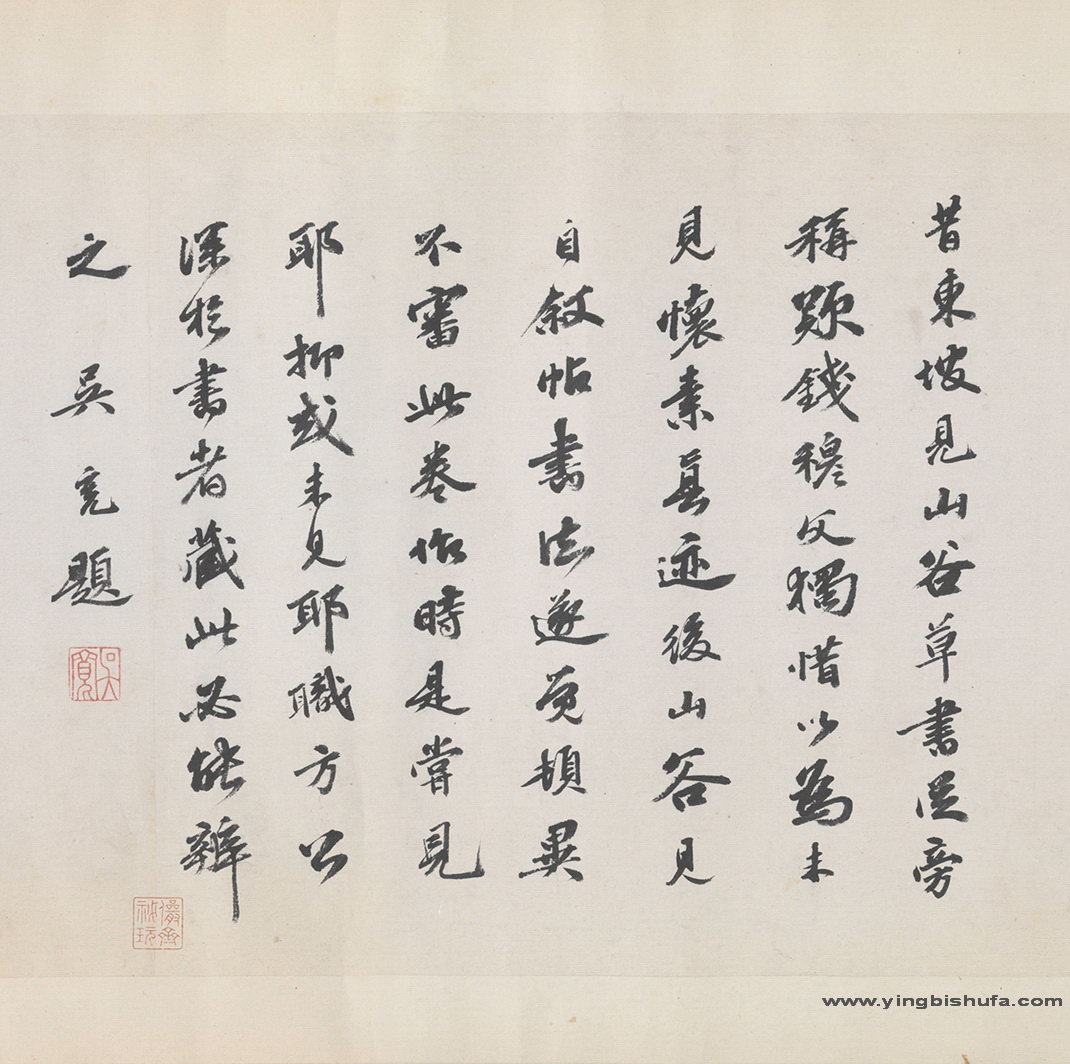 昔東坡見山谷草書從旁
稱歎錢穆父獨惜以為未
見懷素真迹後山谷見
自敘帖書法遂覺頓異
不審此卷作時是嘗見
耶抑或未見耶職方公
深於書者藏此必能辨
之 吳寬題
吳寬
儼齋秘玩
www.yingbishufa.com